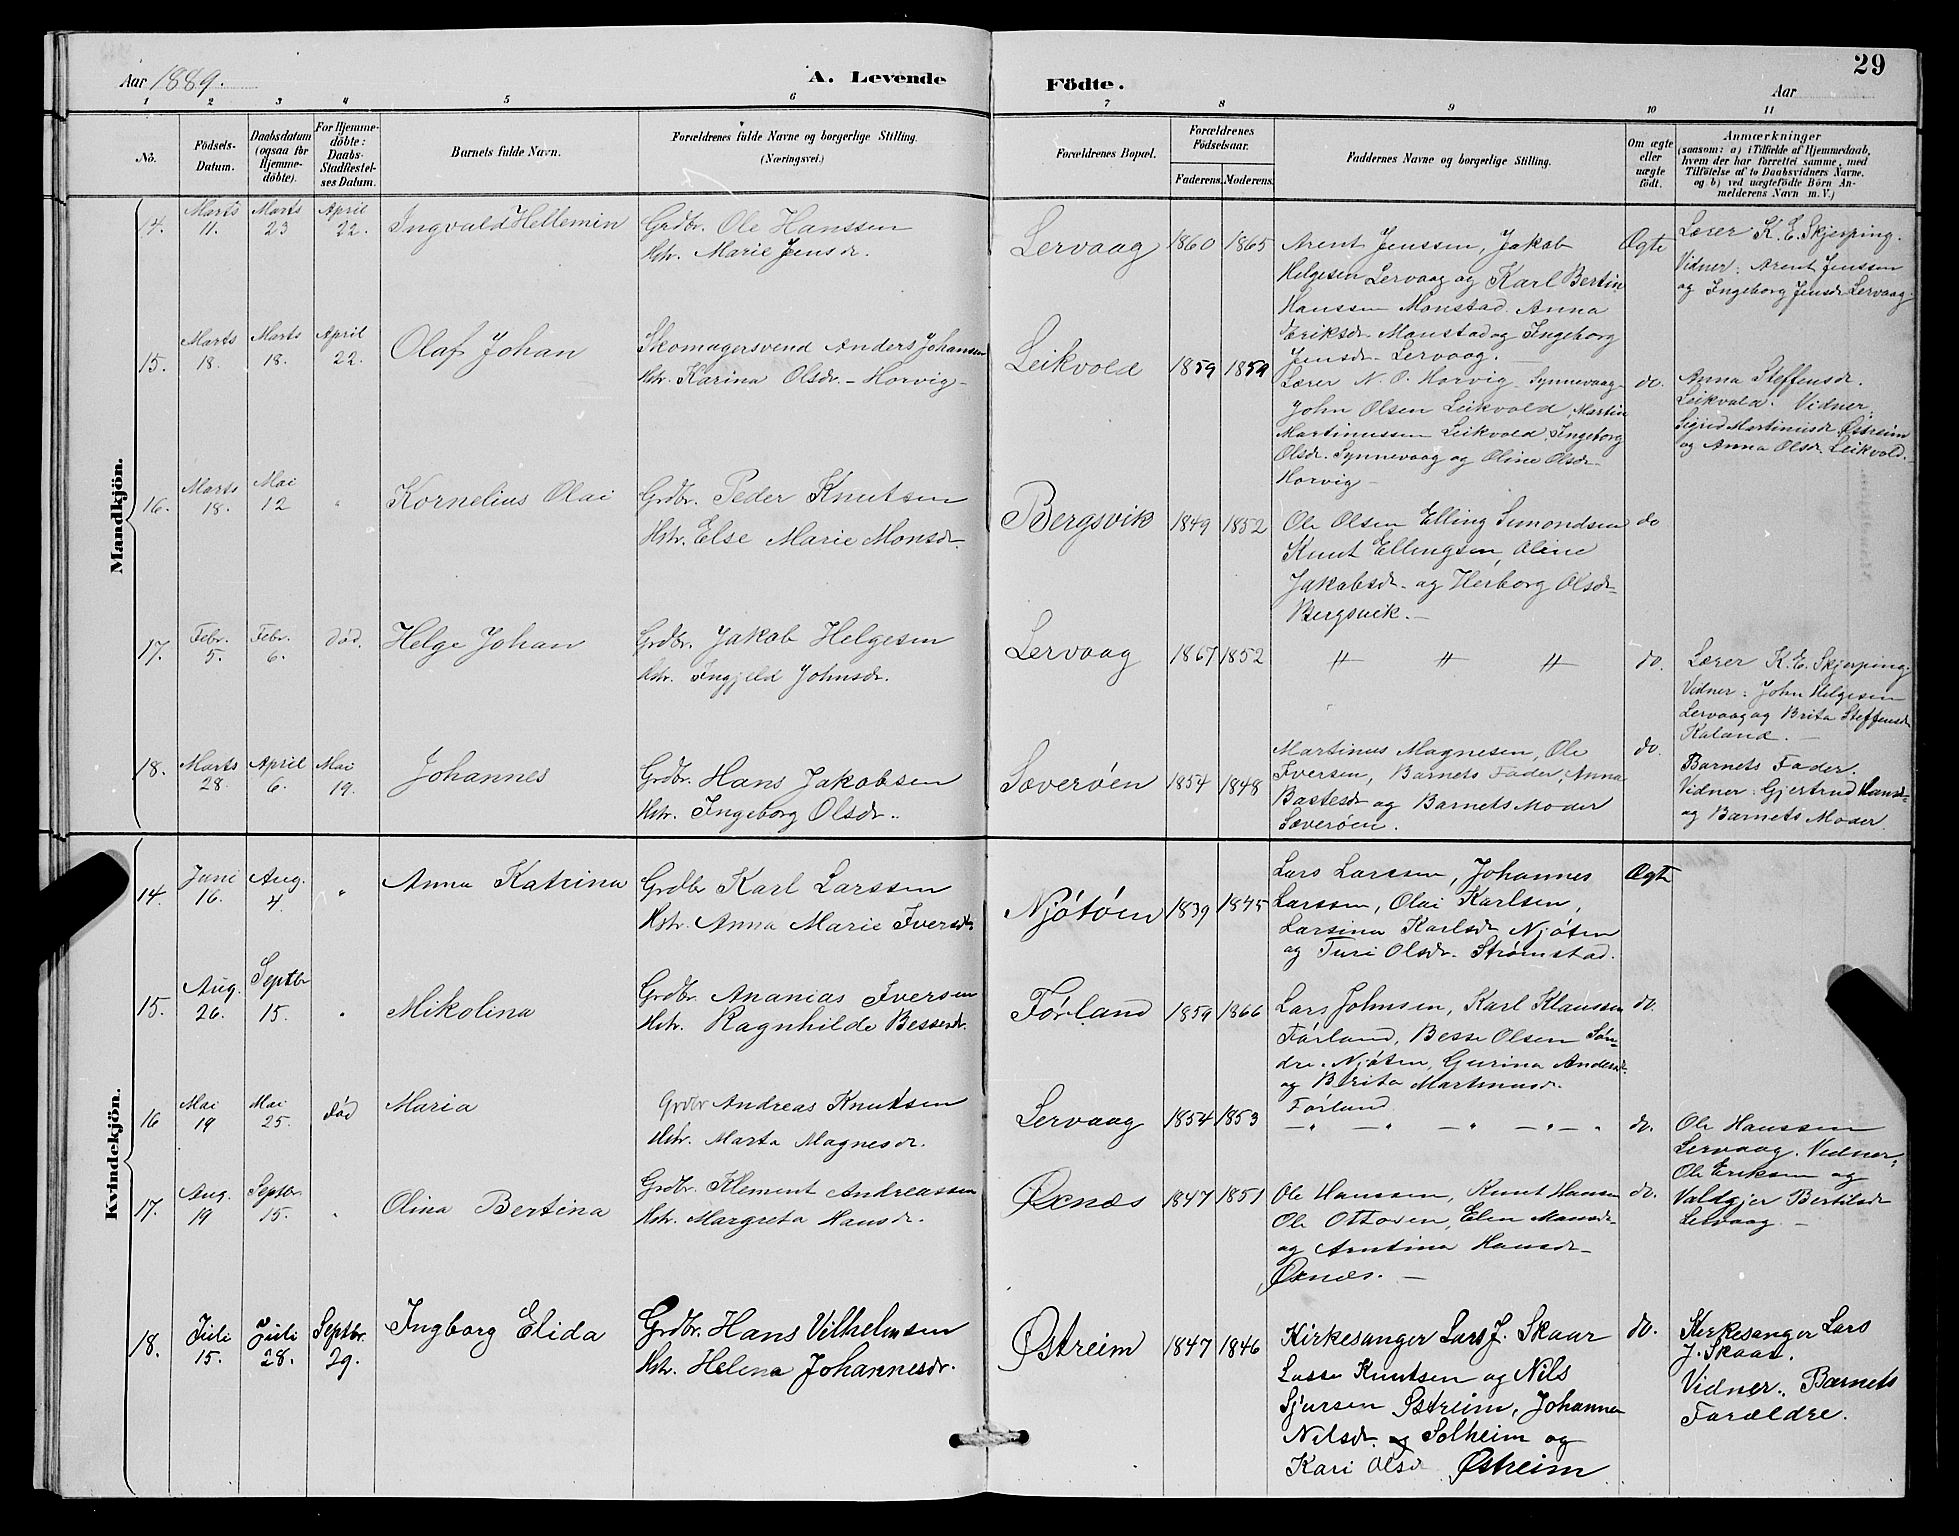 Aar 1889.
A. Levende
Födte.
Aar
29
1 2 3 4 5 6 7 8 9 10 11
No.
Födsels-
Datum.
Daabsdatum
(ogsaa for
Hjemme-
döbte).
For Hjemme-
döbte:
Daabs-
Stadfæstel-
ses Datum.
Barnets fulde Navn.
Forældrenes fulde Navne og borgerlige Stilling.
(Næringsvei.)
Forældrenes Bopæl.
Forældrenes
Födselsaar.
Faderens. Moderens.
Faddernes Navne og borgerlige Stilling.
Om ægte
eller
uægte
födt.
Anmærkninger
(saasom: a) i Tilfælde af Hjemmedaab,
hvem der har forrettet samme, med
Tilföielse af to Daabsvidners Navne,
og b) ved uægtefödte Börn An-
melderens Navn m. V.)
Mandkjön.
14.
Marts
11.
Marts
23
April
22.
Ingvald Hellemin
Grdbr. Ole Hanssen
Hstr. Marie Jensdr.
Lervaag
1860 1865
Arent Jenssen, Jakob
Helgesen Lervaag og Karl Bertin
Hanssen Monstad. Anna
Eriksdr. Monstad og Ingeborg
Jensdr. Lervaag.
Ægte
Lærer K. E. Skjerping.
Vidner: Arent Jenssen
og Ingeborg Jensdr. Lervaag.
15.
Marts
18.
Marts
18.
April
22.
Olaf Johan
Skomagersvend Anders Johansen
Hstr. Karina Olsdr. – Horvig –
Leikvold
1859 1859
Lærer N. O. Horvig – Synnevaag –
John Olsen Leikvold, Martin
Martinussen Leikvold, Ingeborg
Olsdr. Synnevaag og Oline Olsdr.
Horvig –
do.
Anna Steffensdr.
Leikvold. Vidner:
Sigrid Martinusdr. Østreim
og Anna Olsdr. Leikvold.
16.
Marts
18.
Mai
12
"
Kornelius Olai
Grdbr. Peder Knutsen
Hstr. Else Marie Monsdr.
Bergsvik
1849 1852
Ole Olsen Elling Simondsen
Knut Ellingsen, Oline
Jakobsdr. og Herborg Olsdr.
Bergsvik. –
do
17.
Febr.
5.
Febr.
6.
død.
Helge Johan
Grdbr. Jakob Helgesen
Hstr. Ingjeld Johnsdr.
Lervaag
1867 1852
" " "
do.
Lærer K. E. Skjerping.
Vidner: John Helgesen
Lervaag og Brita Steffensdr.
Kaland. –
18.
Marts
28.
April
6.
Mai
19.
Johannes
Grdbr. Hans Jakobsen
Hstr. Ingeborg Olsdr..
Sæverøen
1854 1848
Martinus Magnesen, Ole
Iversen, Barnets Fader, Anna
Bastesdr og Barnets Moder
Sæverøen.
do.
Barnets Fader.
Vidner: Gjertrud Hansdr
og Barnets Moder.
Kvindekjön.
14.
Juni
16.
Aug.
4.
"
Anna Katrina
Grdbr Karl Larssen
Hstr. Anna Marie Iversdr
Njøtøen
1839 1845
Lars Larssen, Johannes
Larssen, Olai Karlsen,
Larsina Karlsdr Njøten
og Turi Olsdr. Strømstad.
Ægte
15.
Aug.
26.
Septbr
15.
"
Mikolina
Grdbr. Ananias Iversen
Hstr. Ragnhilde Bessesdr.
Førland
1859 1866
Lars Johnsen, Karl Klaussen
Førland, Besse Olsen Søn-
dre. Njøten, Gurina Andersdr.
og Brita Martinusdr.
Førland.
do.
16
Mai
19
Mai
25.
død
Maria
Grdbr Andreas Knutsen
Hstr. Marta Magnesdr.
Lervaag
1854 1853
–"– –"– –"– –"–
do.
Ole Hanssen
Lervaag. Vidner:
Ole Eriksen og
Valdgjer Bertilsdr
Lervaag. –
17.
Aug.
19
Septbr.
15.
"
Olina Bertina
Grdbr. Klement Andreassen
Hstr. Margreta Hansdr.
Øxnæs
1847 1851
Ole Hanssen, Knut Hansen
Ole Ottosen, Elen Mansdr.
og Arntina Hansdr.
Øxnæs. –
do.
18.
Juli
15.
Juli
28.
Septbr.
29.
Ingborg Elida
Grdbr. Hans Vilhelmsen
Hstr. Helena Johannesdr.
Østreim
1847 1846
Kirkesanger Lars J. Skaar
Lasse Knutsen og Nils
Sjursen Østreim, Johanna
Nilsdr. og Solheim og
Kari Olsdr Østreim
do.
Kirkesanger Lars
J. Skaar.
Vidner: Barnets
Forældre.